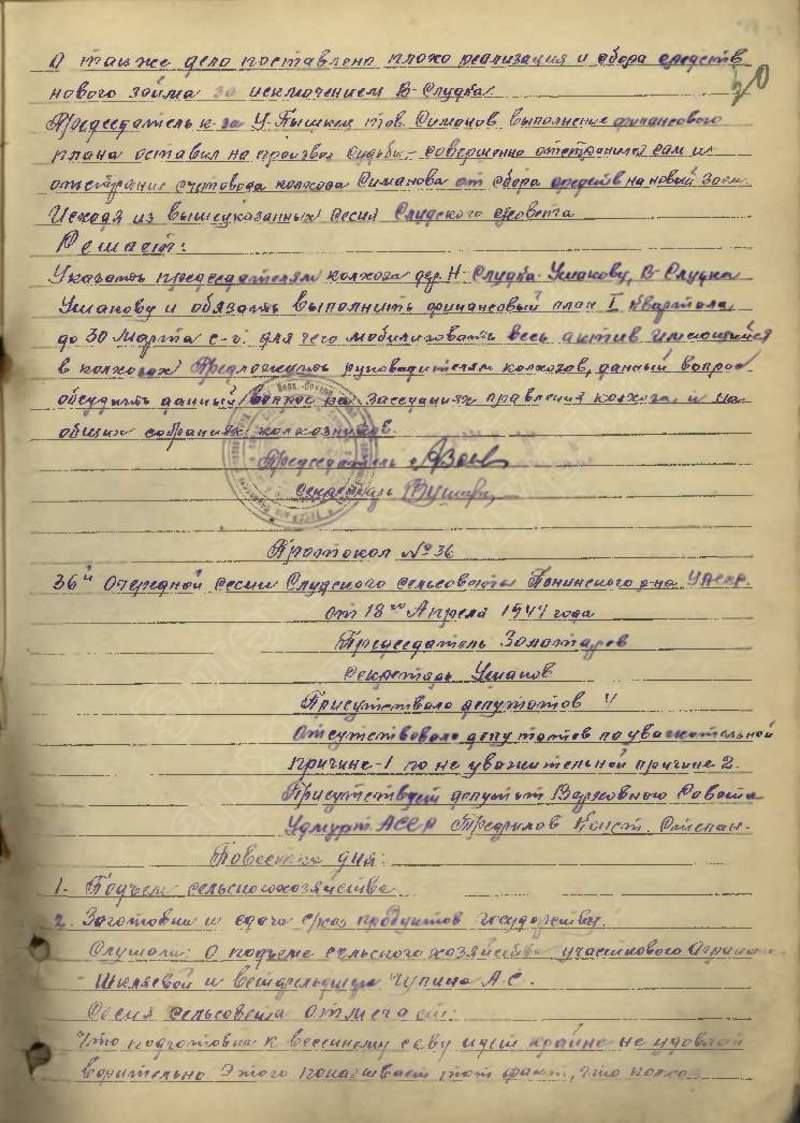 А также дело поставлено плохо реализация и сбора средств
нового займа за исключением В-Слудка.
Председатель к-за У-Пышкец тов. Симанов выполнение финансового
плана оставил на произвол судьбы,- совершенно отстранился сам и
счетовода колхоза Симанова от сбора средств на новый заем.
Исходя из вышеуказанных сесия Слудского с/совета
Решает:
Указать председателям колхоза дер. Н-Слудка Ушакову, В-Слудка
Ушакову и обязать выполнить финансовый план I квартала
до 30 марта с-г. для чего мобилизовать весь актив имеющийся
в колхозах Предложить руководителям колхозов, данный вопрос
обсудить данный вопрос на заседаниях правления колхоза и на
общих собраниях колхозников.
Председатель
Секретарь
Протокол № 36
36й Очередной сесии Слудского сельсовета Понинского р-на УАССР.
от 18го Апреля 1947 года
Председатель Золотарев
Секретарь Ушаков
Присутствовало депутатов 4
Отсутствовало депутатов по уважительной
причине-1 по не уважительной причине 2.
Присутствует депутат Верховного Совета
Удмурт. АССР Конст.
Повестка дня:
1. Подъем сельского хозяйства
2. Заготовки и сдача с/хоз продуктов государству.
Слушали: О подъеме сельского хозяйства участкового Агронома
Шкляевой и ветфельдшера Чупина А.С.
Сесия сельсовета отмечает:
Что подготовка к весеннему севу идет крайне не удовлет
ворительно Этого показывает тот факт, что колхоз